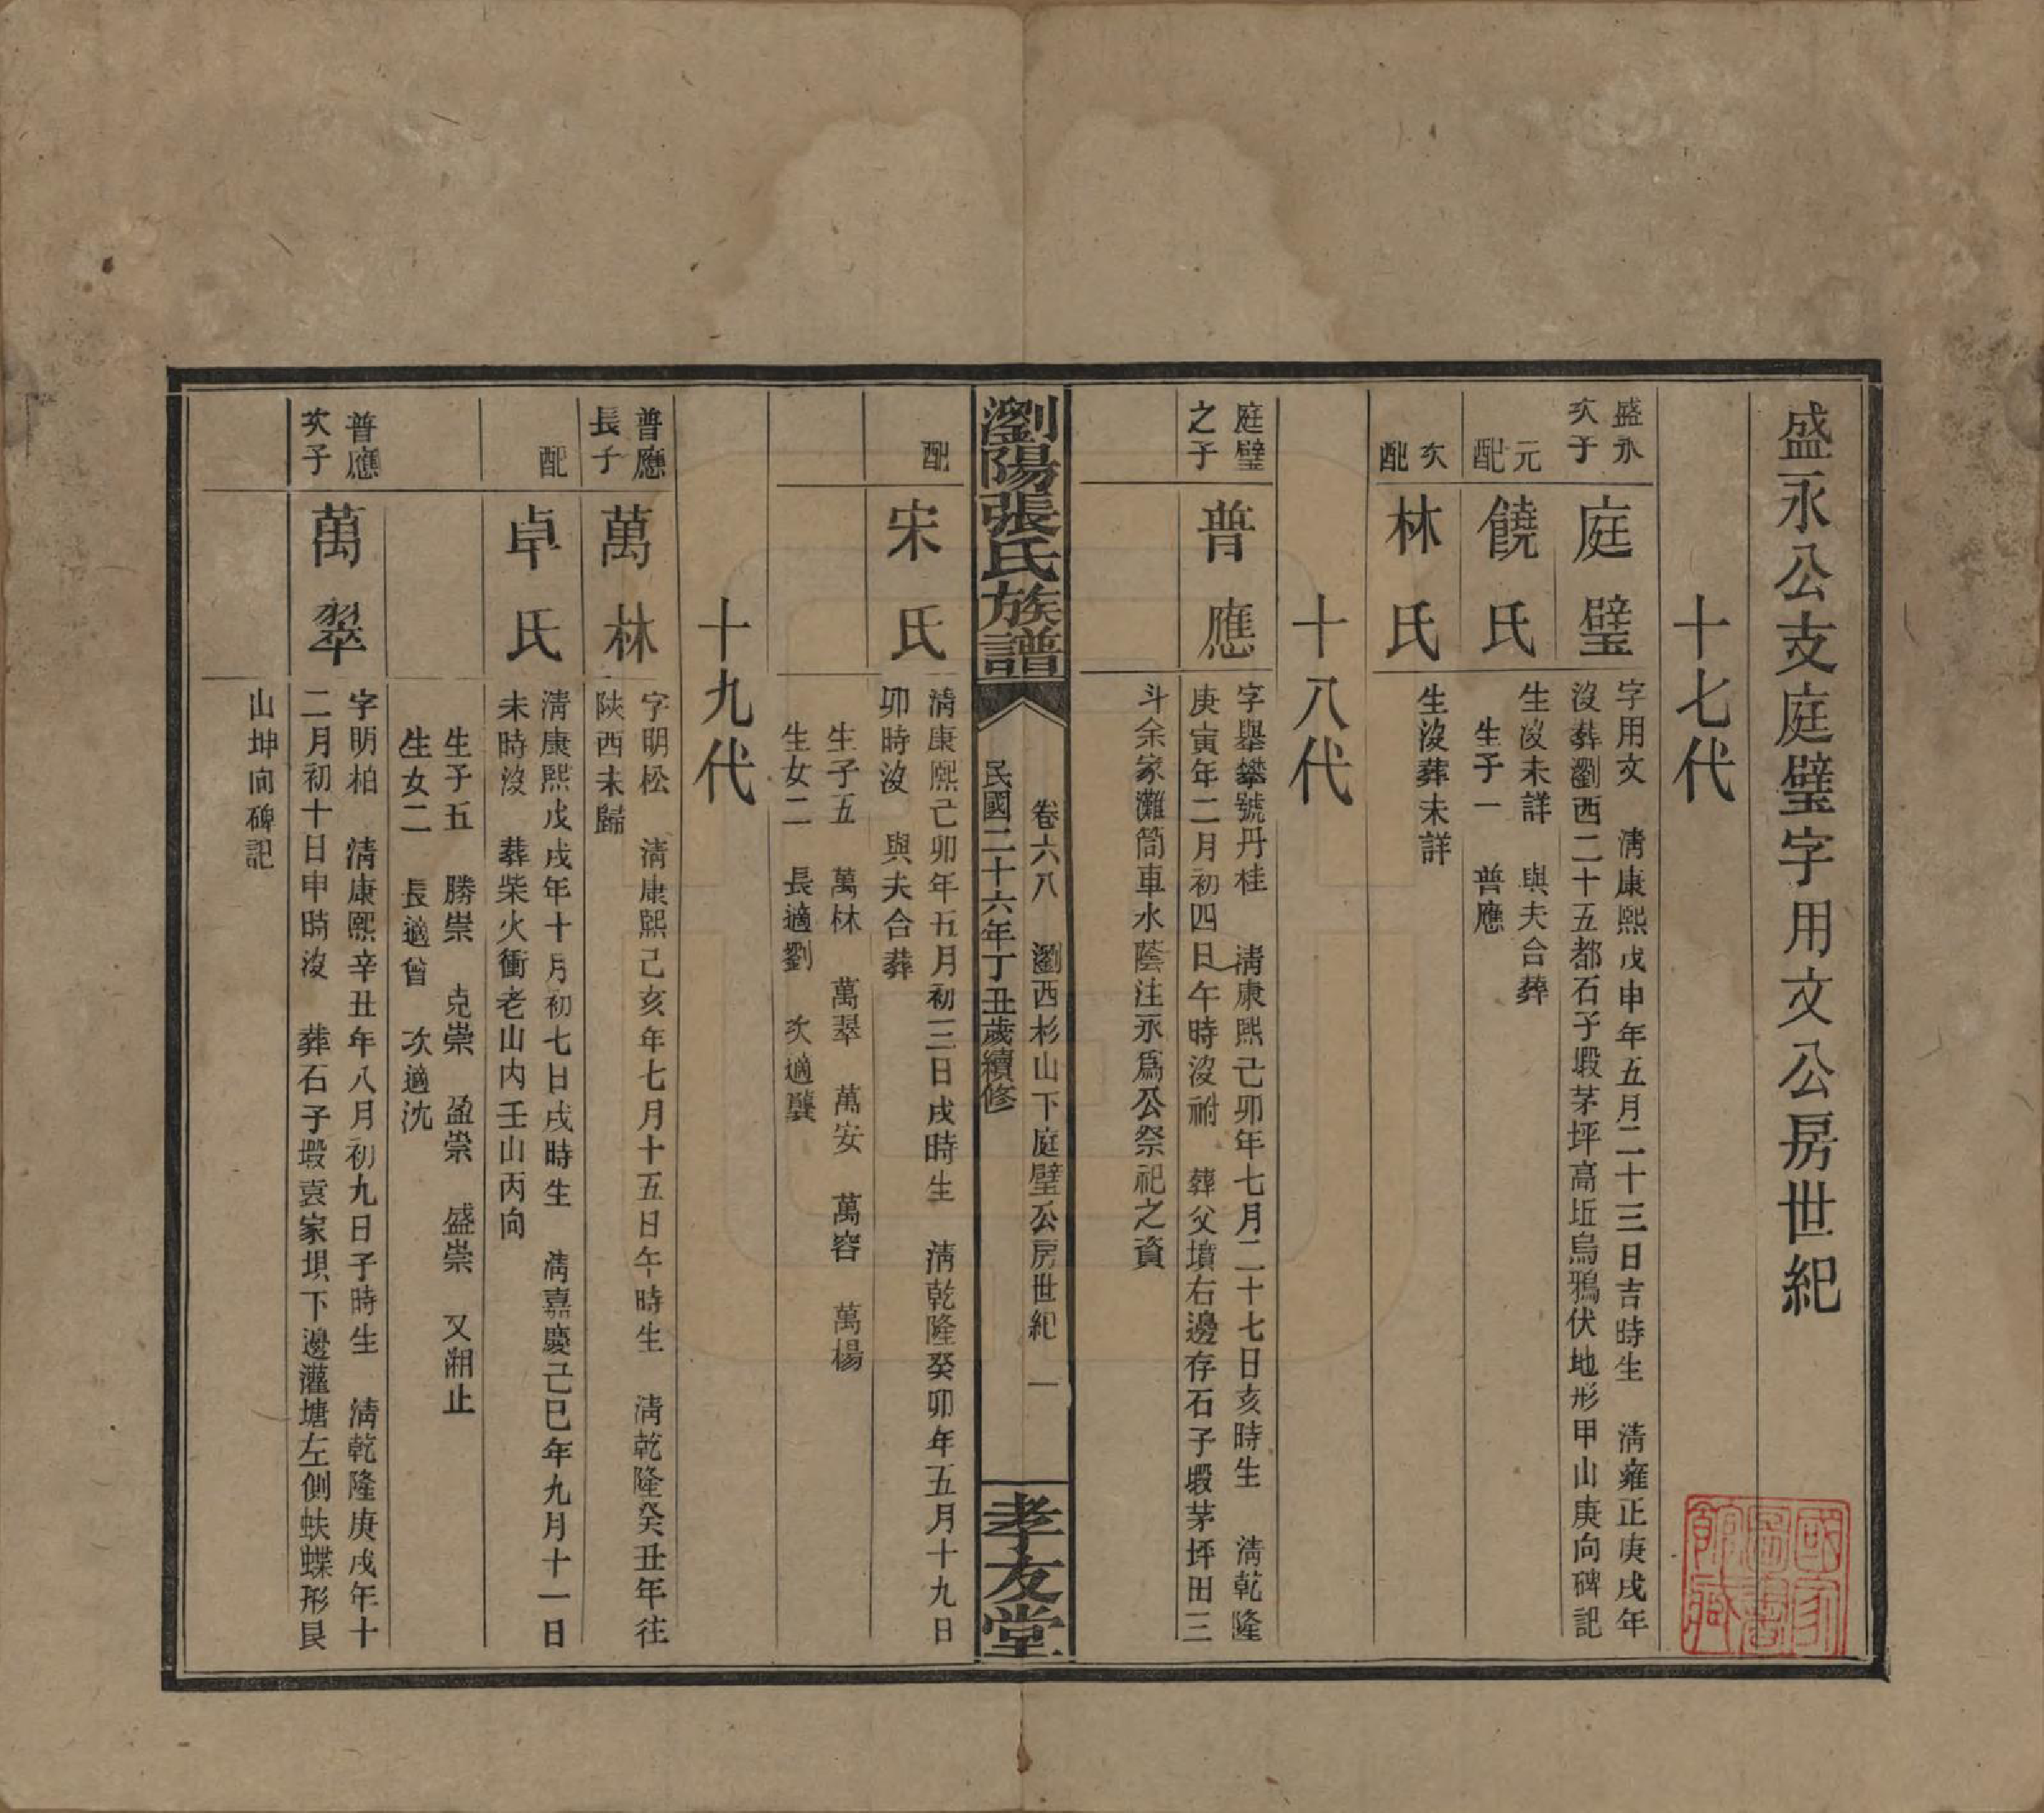 盛永公支庭璧字用文公房世紀
十七代
盛永
次子
庭璧
字用文　清康熙戊申年五月二十三日吉時生　清雍正庚戌年
沒葬瀏西二十五都石子塅茅坪高坵烏鴉伏地形甲山庚向碑記
元
配
饒氏
生沒未詳　與夫合葬
生子一　普應
次
配
林氏
生沒葬未詳
十八代
庭璧
之子
普應
字舉攀號丹桂　清康熙己卯年七月二十七日亥時生　清乾隆
庚寅年二月初四日午時沒祔　葬父墳右邊存石子塅茅坪田三
斗余家灘筒車水蔭注永爲公祭祀之資
瀏陽張氏族譜
卷六八　瀏西杉山下庭璧公房世紀　一
民國二十六年丁丑歲續修
孝友堂
配
宋氏
清康熙己卯年五月初三日戌時生　清乾隆癸卯年五月十九日
卯時沒　與夫合葬
生子五　萬林　萬翠　萬安　萬容　萬楊
生女二　長適劉　次適龔
十九代
普應
長子
萬林
字明松　清康熙己亥年七月十五日午時生　清乾隆癸丑年往
陝西未歸
配
卓氏
清康熙戊戌年十月初七日戌時生　清嘉慶己巳年九月十一日
未時沒　葬柴火衝老山內壬山丙向
生子五　勝崇　克崇　盈崇　盛崇　又朔止
生女二　長適曾　次適沈
普應
次子
萬翠
字明柏　清康熙辛丑年八月初九日子時生　清乾隆庚戌年十
二月初十日申時沒　葬石子塅袁家垻下邊灌塘左側蚨蝶形艮
山坤向碑記
國家
圖書
館藏